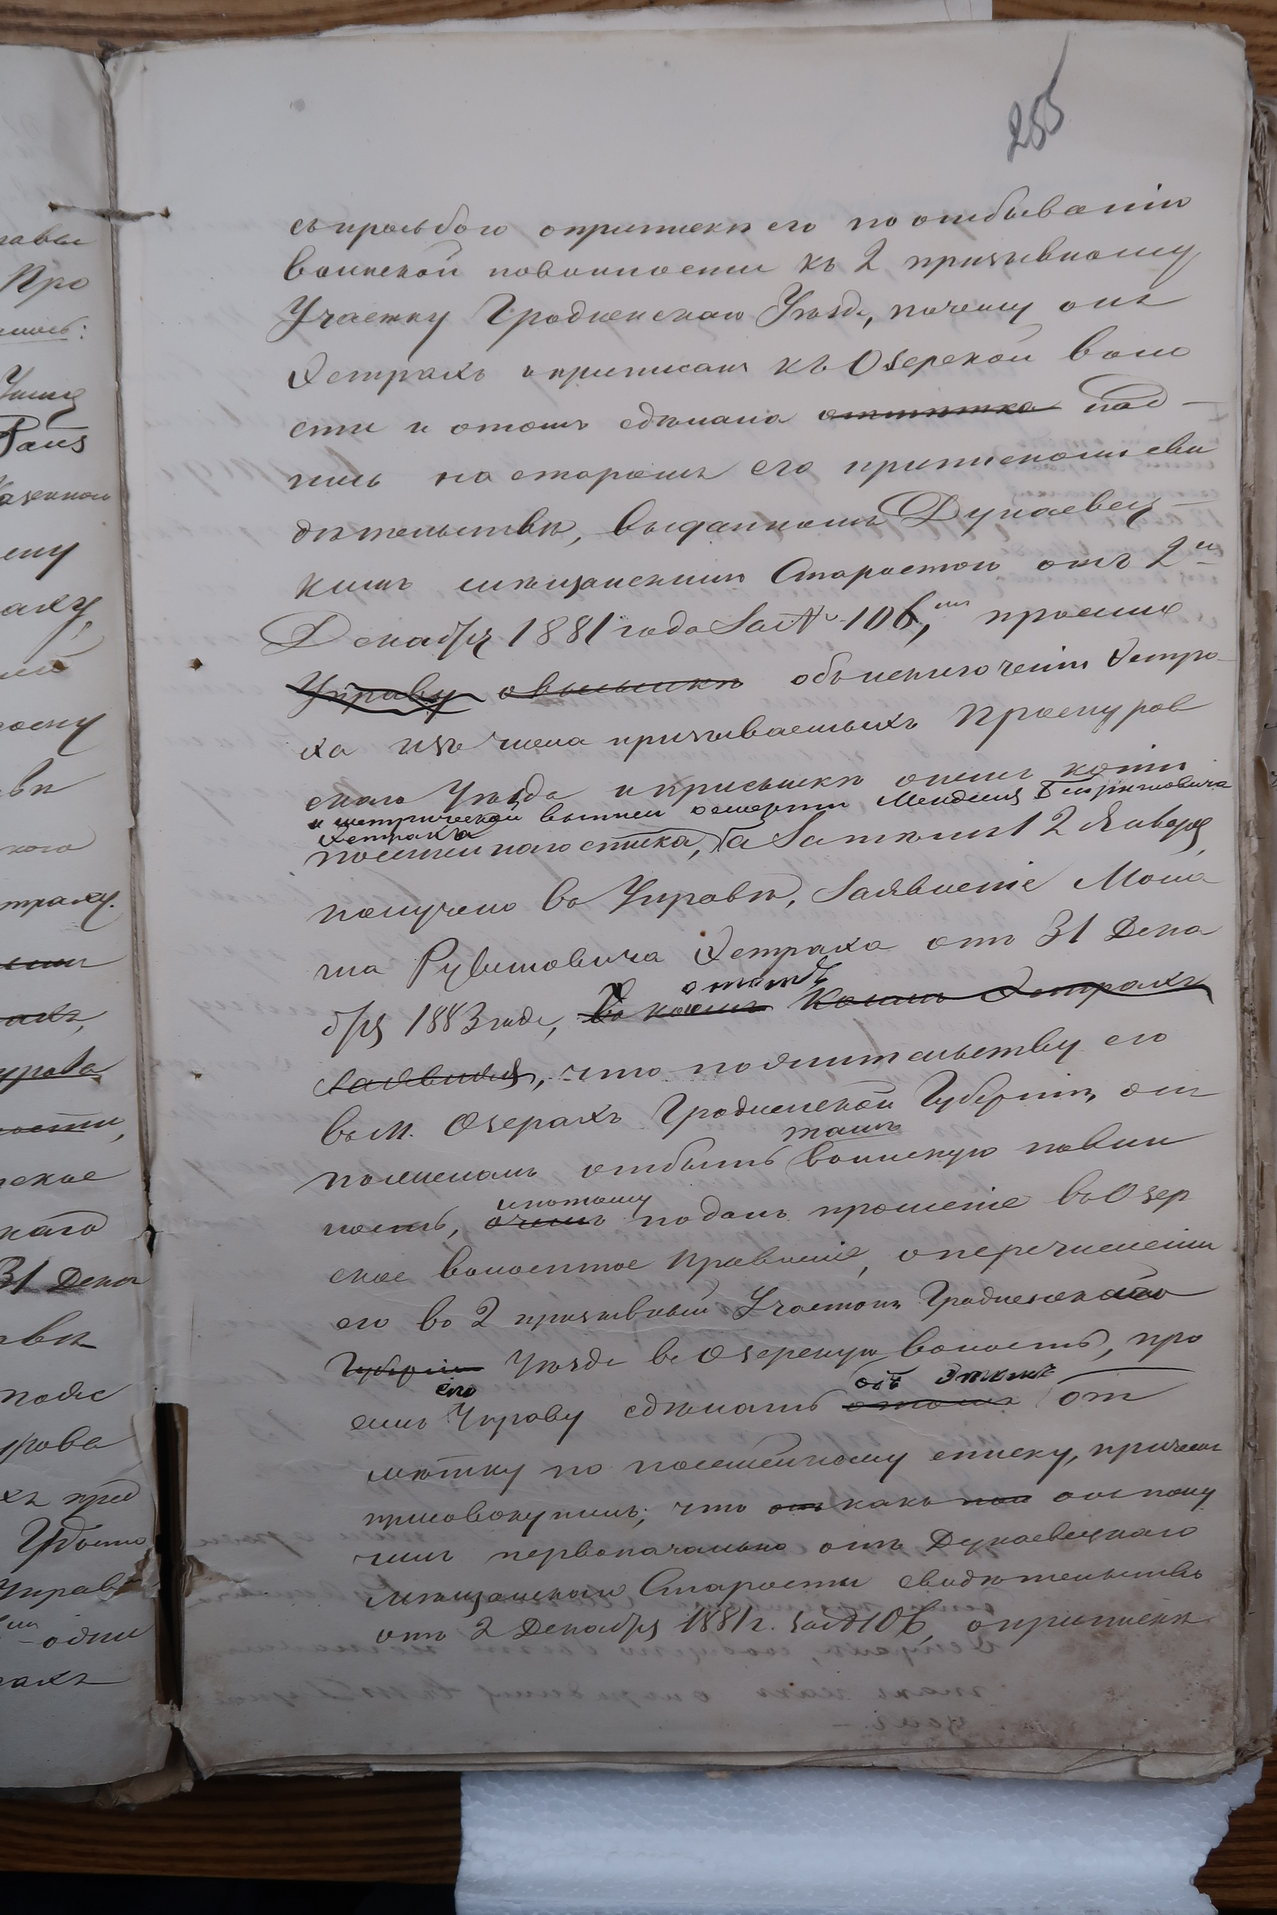 255
съ просьбою о приписки его по отбыванію
воинской повинности къ 2 призывному
Участку Гродненскаго Уезда, почему онъ
Эстрахъ и приписанъ къ Озерской воло
сти и о томъ сделана отметка над-
пись на старомъ его приписномъ сви
детельстве, выданномъ Дунаевец-
кимъ мещанскимъ Старостою отъ 2го
Декабря 1881 года за № 106, просилъ
Управу о высылке объ исключеніи Эстра-
ха изъ числа призываемыхъ Проскуров
скаго Уезда и присылке оному копіи
и метрической выписи о смерти Менделя
Эстраха
посемейнаго списка, а затемъ 12 Января,
получено въ Управе, Заявленіе Мош
ка Рувиновича Эстраха отъ 31 Дека
о томъ
бря 1883 года, въ коемъ Эстрахъ
заявилъ, что по жительству его
въ м. Озерахъ Гродненской Губерніи, онъ
тамъ
пожелалъ отбыть воинскую повин
и потому
ность, о чемъ подалъ прошеніе въ Озер
ское волостное Правленіе, о перечисленіи
его во 2 призывный Участокъ Гродненскаго
Губерніи Уезда въ Озерскую волость, про
его объ этомъ
силъ Управу сделать о томъ от
метку по посемейному списку, причемъ
присовокупилъ, что онъ какъ онъ полу
чилъ первоначально отъ Дунаевецкаго
мещанскаго Старосты свидетельство
отъ 2 Декабря 1881 г. за № 106, о приписке
31 Дека